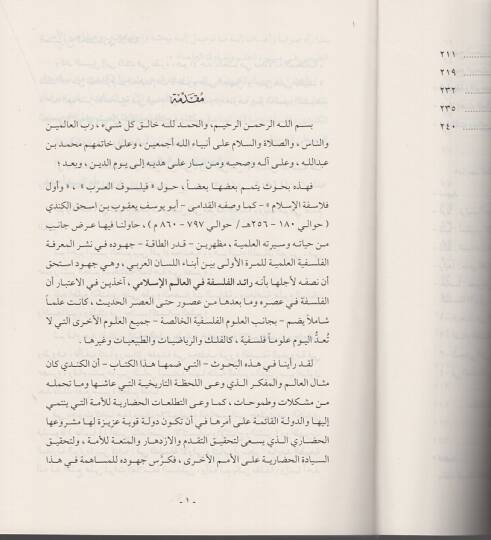 مُقَدِّمَة
بسم الله الرحمن الرحيم، والحمد لله خالق كل شيء، رب العالمين
والناس، والصلاة والسلام على أنبياء الله أجمعين، وعلى خاتمهم محمد بن
عبدالله، وعلى آله وصحبه ومن سار على هديه إلى يوم الدين، وبعد؛
فهذه بحوث يتمم بعضها بعضاً، حول « فيلسوف العرب » ، « وأول
فلاسفة الإسلام » - كما وصفه القدامى - أبو يوسف يعقوب بن اسحق الكندي
(حوالي ١٨٠ - ٢٥٦هـ/ حوالي ٧٩٧ - ٨٦٠م)، حاولنا فيها عرض جانب
من حياته وسيرته العلمية، مظهرين - قدر الطاقة - جهوده في نشر المعرفة
الفلسفية العلمية للمرة الأولى بين أبناء اللسان العربي، وهي جهود استحق
أن نصفه لأجلها بأنه رائد الفلسفة في العالم الإسلامي، آخذين في الاعتبار أن
الفلسفة في عصره وما بعدها من عصور حتى العصر الحديث، كانت علماً
شاملاً يضم - بجانب العلوم الفلسفية الخالصة - جميع العلوم الأخرى التي لا
تُعدُّ اليوم علوماً فلسفية، كالفلك والرياضيات والطبيعيات وغيرها.
لقد رأينا في هذه البحوث - التي ضمها هذا الكتاب - أن الكندي كان
مثال العالم والمفكر الذي وعى اللحظة التاريخية التي عاشها وما تحمله
من مشكلات وطموحات، كما وعى التطلعات الحضارية للأمة التي ينتمي
إليها والدولة القائمة على أمرها في أن تكون دولة قوية عزيزة لها مشروعها
الحضاري الذي يسعى لتحقيق التقدم والازدهار والمنعة للأمة، ولتحقيق
السيادة الحضارية على الأمم الأخرى، فكرَّس جهوده للمساهمة في هذا
- ١ -
٢١١
٢١٩
٢٣٢
٢٣٥
٢٤٠